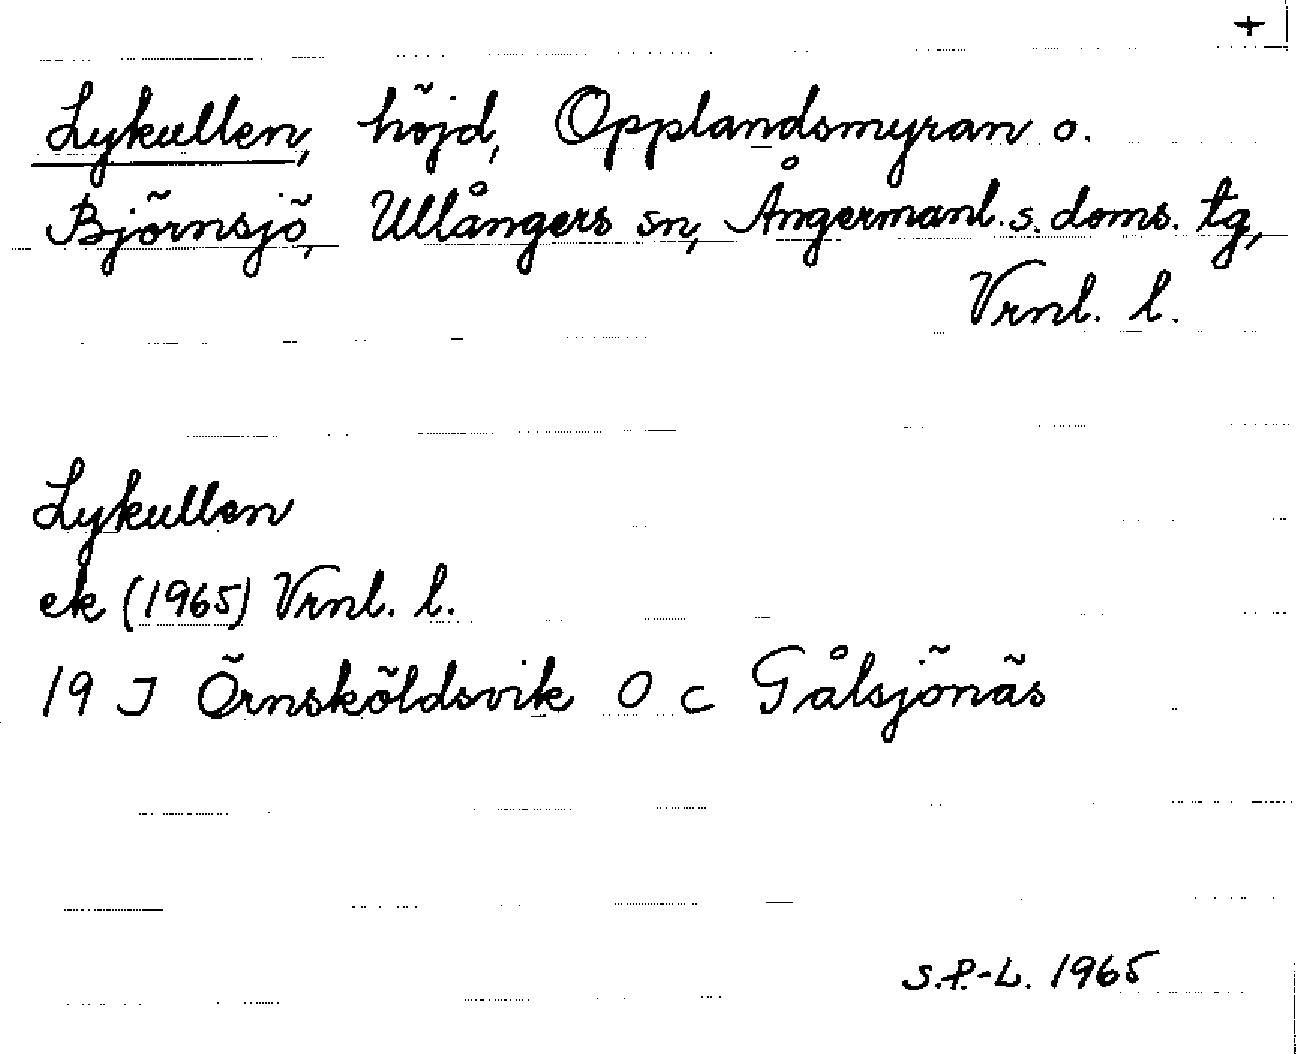 +
Lykullen, höjd, Opplandsmyran o.
Björnsjö, Ullångers sn, Ångermanl. s. doms. tg,
Vrnl. l.
Lykullen
ek (1965) Vrnl. l.
19 J Örnsköldsvik O c Gålsjönäs
S.P.-L. 1965